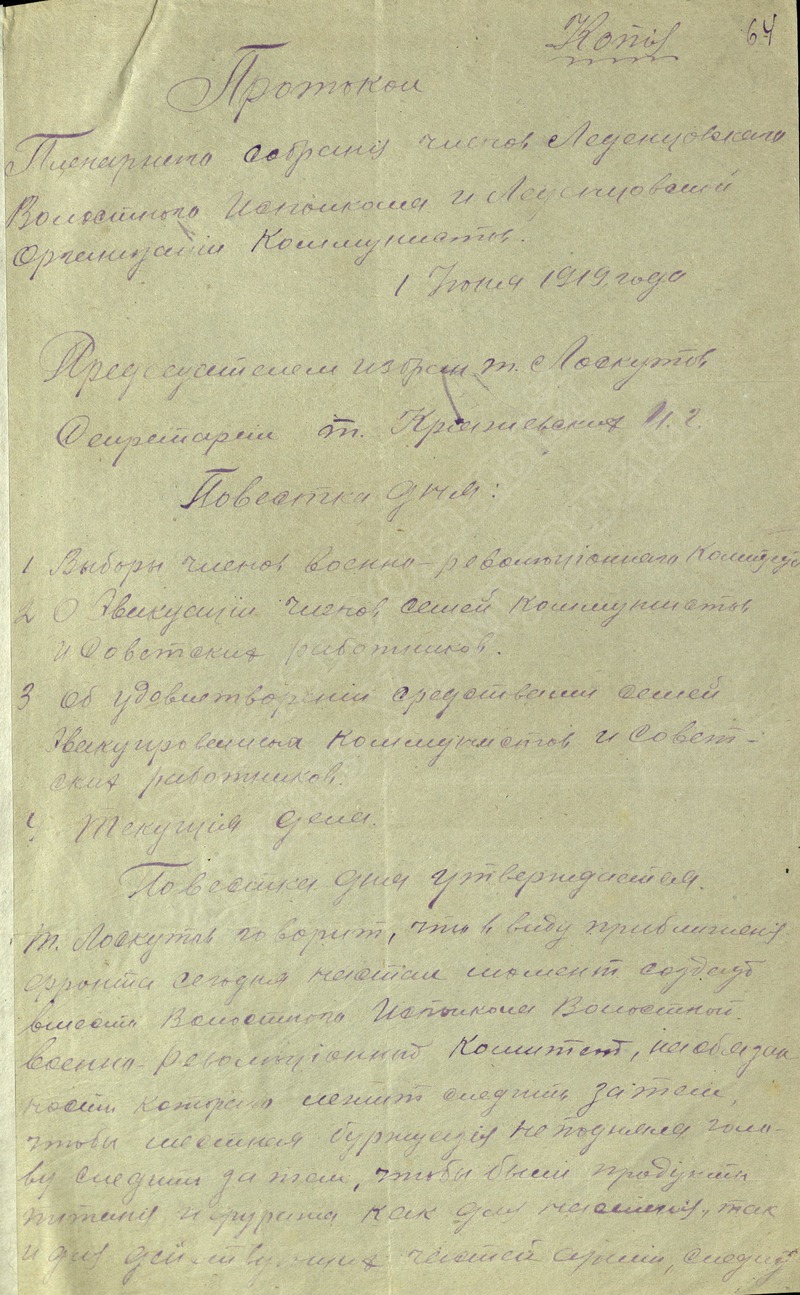 Копія
64
Протокол
Пленарнаго собранія членов Леденцовскаго
Волостного Исполкома и Леденцовской
Организаціи Коммунистов.
1 Июня 1919 года
Председателем избран т. Лоскутов
Секретарем т. И. Г.
Повестка дня:
1 Выборы членов военно-революціоннаго Комитета
2 О Эвакуаціи членов семей Коммунистов
и Советских работников.
3 Об удовлетвореніи средствами семей
Эвакуированных Коммунистов и Совет-
ских работников.
4 Текущія дела.
Повестка дня утверждается.
т. Лоскутов говорит, что в виду приближенія
фронта сегодня настал момент создать
вместо Волостного Исполкома Волостной
военно-революціонный Комитет, на обязан
ности котораго лежит следить за тем,
чтобы местная буржуазія не подняла голо-
ву следить за тем, чтобы были продукты
питанія и фуража как для населенія, так
и для действующих частей арміи, следить